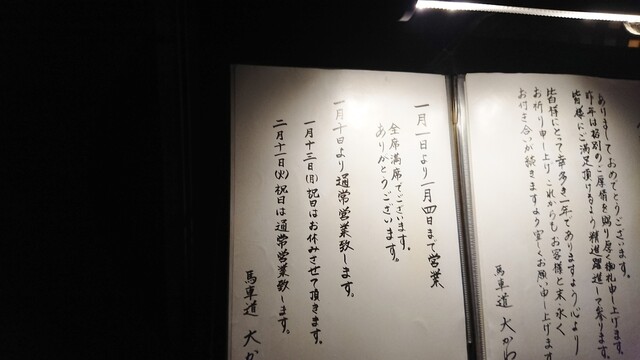 ありましておめでとうございます。
昨年は格別のご厚情を賜り厚く御礼申し上げます。
皆様にご満足頂けるよう精進躍進して参ります。
皆様にとって幸多き一年でありますよう心より
お祈り申し上げ これからも お客様と末永く
お付き合いが続きますよう宜しくお願い申し上げます
馬車道 大かわ
一月一日より一月四日まで営業
全席満席でございます。
ありがとうございます。
一月十日より通常営業致します。
一月十三日(月)祝日はお休みさせて頂きます。
二月十一日(火)祝日は通常営業致します。
馬車道 大か